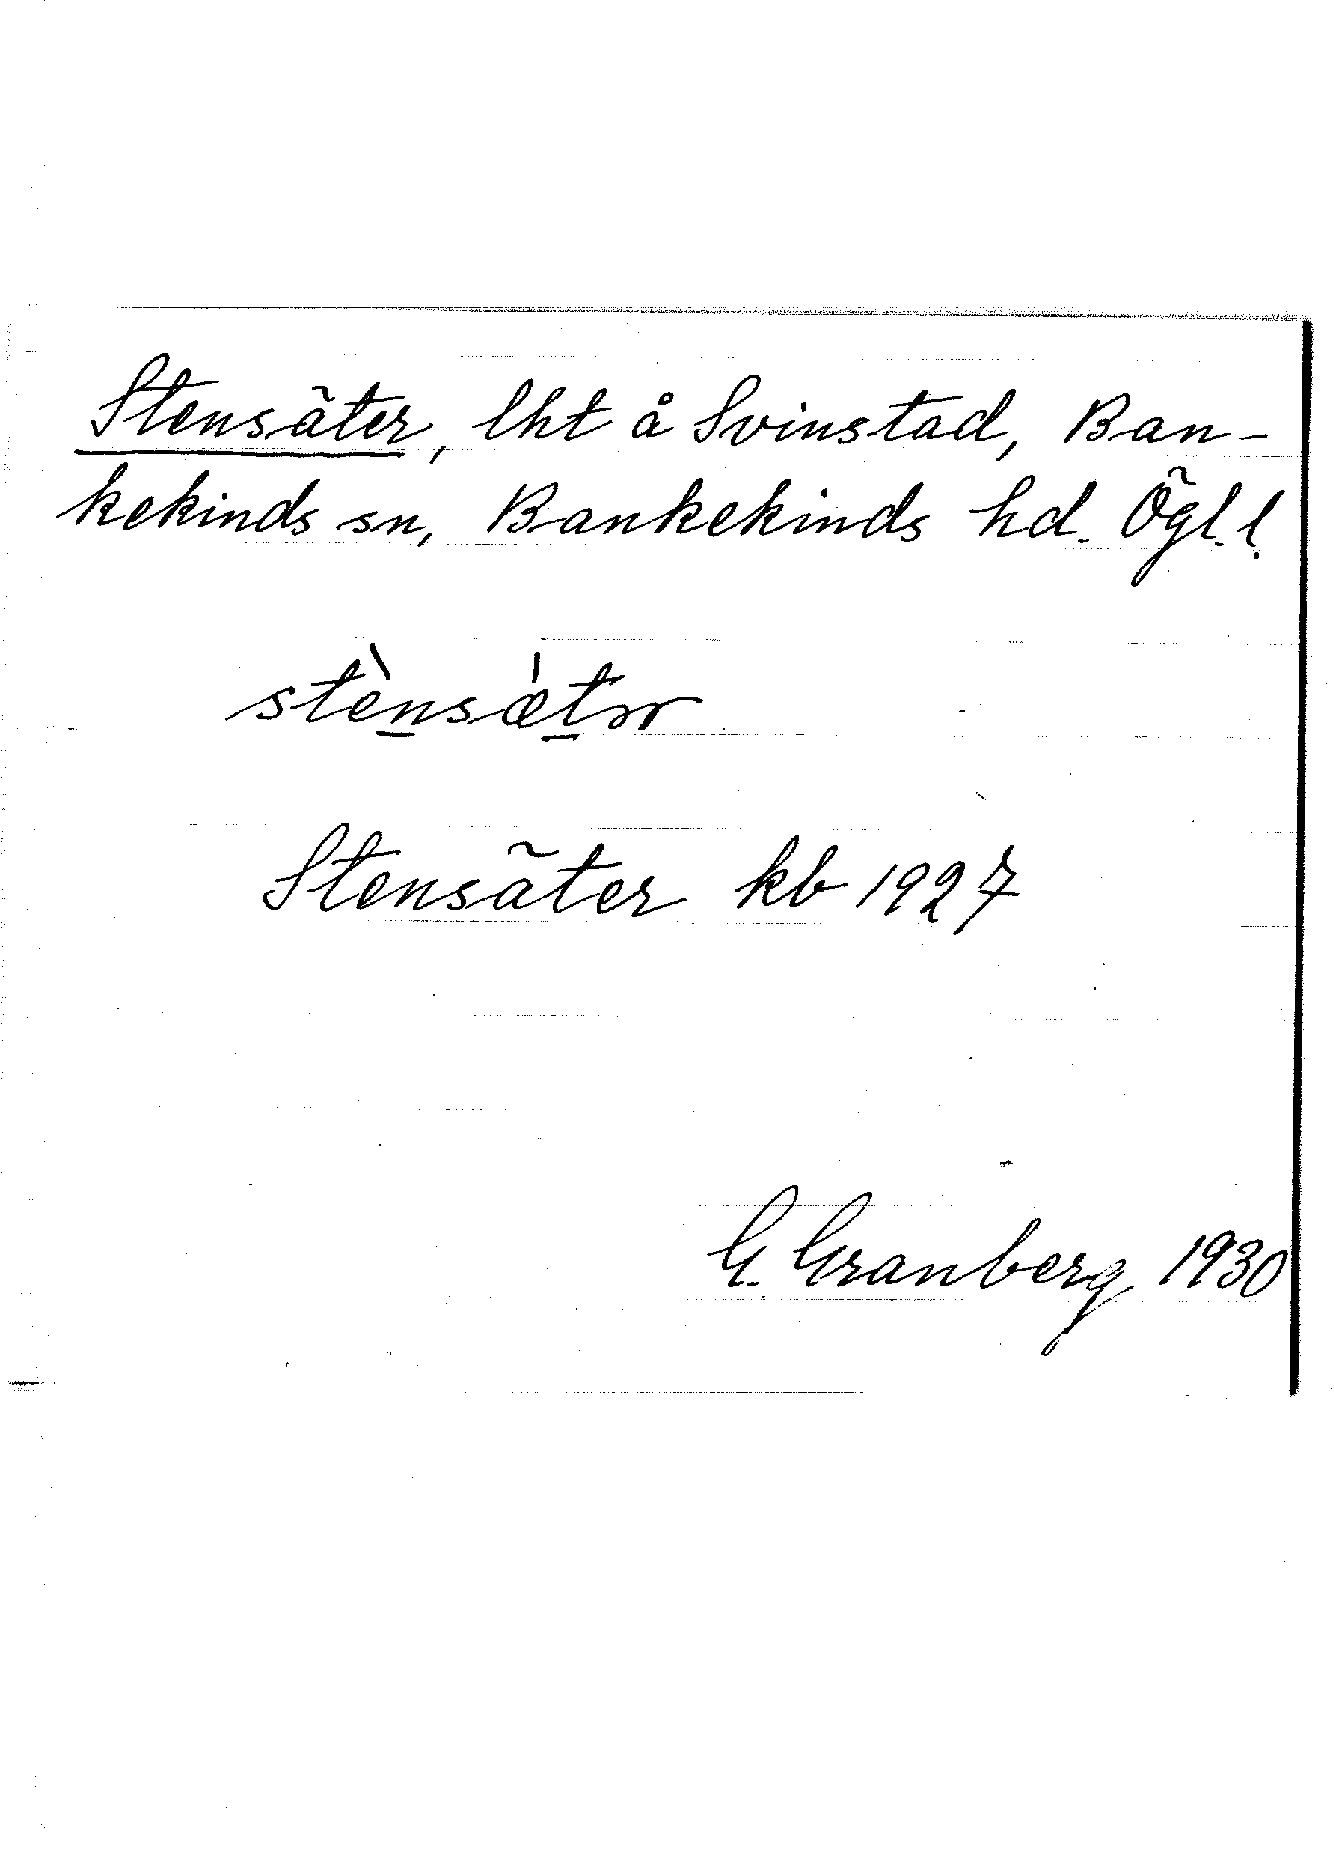 Stensäter, lht å Svinstad, Ban-
kekinds sn, Bankekinds hd. Ögl. l.
stènsætər
Stensäter kb 1927
G. Granberg 1930